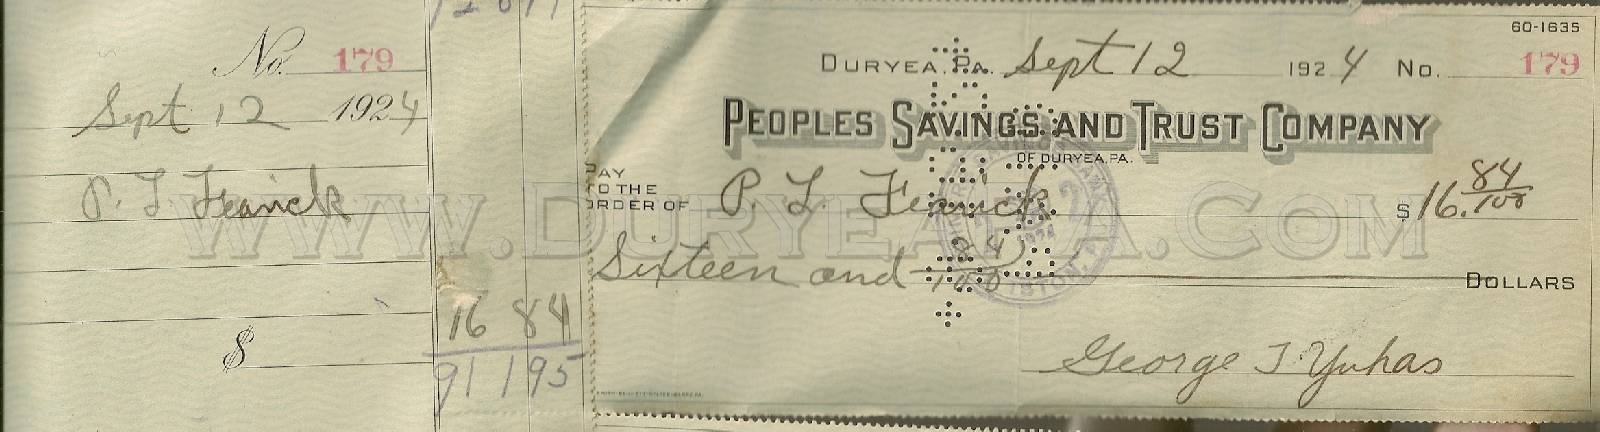 No. 179
Sept 12 1924
P. L. Fearick
$
16 84
91 195
60-1635
DURYEA, PA. Sept 12 1924 No. 179
PEOPLES SAVINGS AND TRUST COMPANY
OF DURYEA, PA.
PAY
TO THE
ORDER OF P. L. Fearick $ 16. 84/100
Sixteen and 84/100 DOLLARS
George J Yuhas
WWW.DURYEAPA.COM